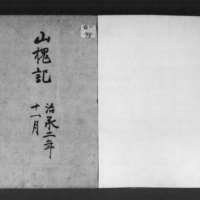 山槐記
治承二年
十一月